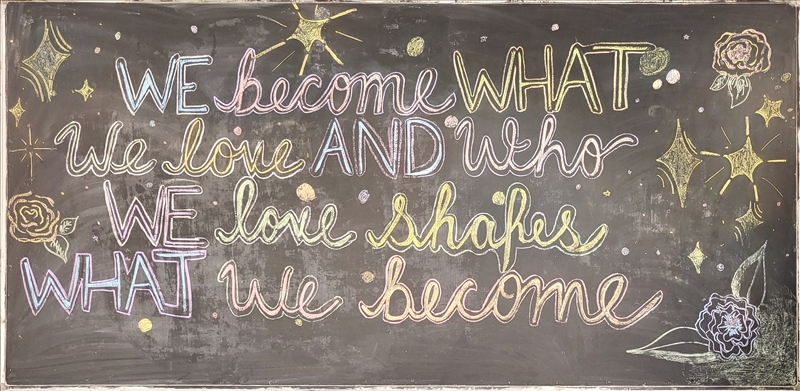 WE become WHAT
We love AND Who
WE love shapes
WHAT We become